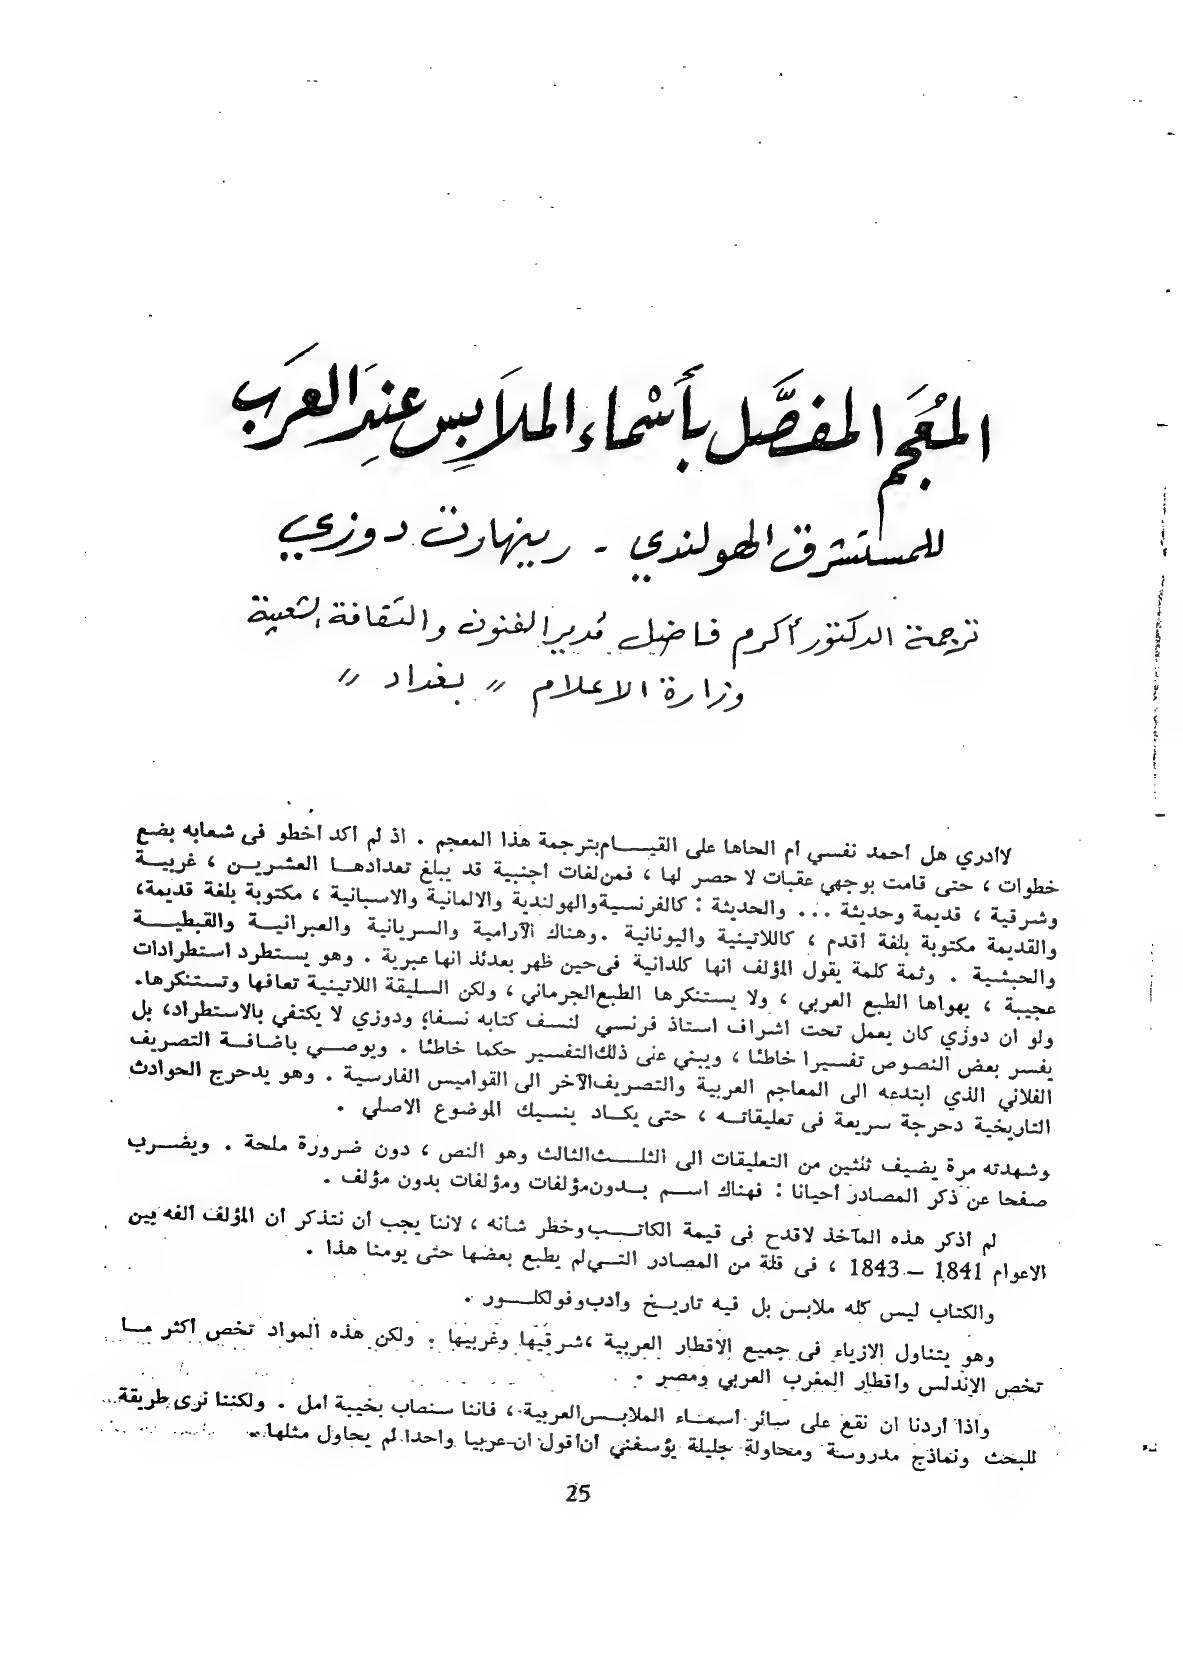 المُعجَم المفصَّل بأَسْماء الملَابِس عِندَ العرَب
للمستشرق الهولندي - رينهارت دوزي
ترجمة الدكتور أكرم فاضل مُدير الفنون والثقافة الشعبية
وزارة الاعلام " بغداد "
لاأدري هل أحمد نفسي أم الحاها على القيـــام بترجمة هذا المعجم . اذ لم أكد أخطو فى شعابه بضع
خطوات ، حتى قامت بوجهي عقبات لا حصر لها ، فمن لغات أجنبية قد يبلغ تعدادهــا العشريــن ، غربيـة
وشرقية ، قديمة وحديثة ... والحديثة : كالفرنسية والهولندية والالمانية والاسبانية ، مكتوبة بلغة قديمة،
والقديمة مكتوبة بلغة أقدم ، كاللاتينية واليونانية . وهناك الآرامية والسريانية والعبرانيــة والقبطيــة
والحبشية . وثمة كلمة يقول المؤلف انها كلدانية فى حين ظهر بعدئذ انها عبرية . وهو يستطرد استطرادات
عجيبة ، يهواها الطبع العربي ، ولا يستنكرها الطبع الجرماني ، ولكن السليقة اللاتينية تعافها وتستنكرها.
ولو ان دوزي كان يعمل تحت اشراف استاذ فرنسي لنسف كتابه نسفا؛ ودوزي لا يكتفي بالاستطراد، بل
يفسر بعض النصوص تفسيرا خاطئا ، ويبني على ذلك التفسير حكما خاطئا . ويوصــي باضافــة التصريف
الفلاني الذي ابتدعه الى المعاجم العربية والتصريف الآخر الى القواميس الفارسية . وهو يدحرج الحوادث
التاريخية دحرجة سريعة فى تعليقاتــه ، حتى يكــاد ينسيك الموضوع الاصلي .
وشهدته مرة يضيف ثلثين من التعليقات الى الثلــث الثالث وهو النص ، دون ضرورة ملحة . ويضــرب
صفحا عن ذكر المصادر أحيانا : فهناك اســم بــدون مؤلفات ومؤلفات بدون مؤلف .
لم أذكر هذه المآخذ لاقدح فى قيمة الكاتــب وخطر شأنه ، لاننا يجب أن نتذكر ان المؤلف الفه بين
الاعوام 1841 – 1843 ، فى قلة من المصادر التــي لم يطبع بعضها حتى يومنا هذا .
والكتاب ليس كله ملابس بل فيه تاريــخ وأدب وفولكلــور .
وهو يتناول الازياء فى جميع الاقطار العربية ، شرقيها وغربيها . ولكن هذه المواد تخص أكثر مــا
تخص الاندلس وأقطار المغرب العربي ومصر .
واذا أردنا ان نقع على سائر أسمــاء الملابس العربية ، فاننا سنصاب بخيبة أمل . ولكننا نرى طريقة
للبحث ونماذج مدروسة ومحاولة جليلة يؤسفني أن أقول ان عربيا واحدا لم يحاول مثلها .
25